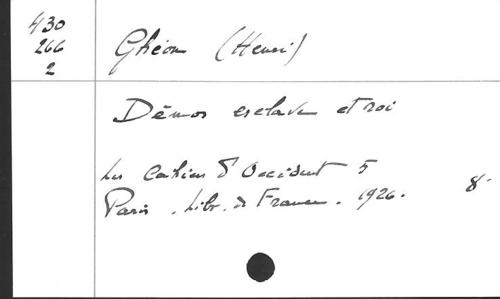 430
266
2
Ghéon (Henri)
Démos esclave et roi
Les Cahiers d'Occident 5
Paris. Libr. de France. 1926. 8°